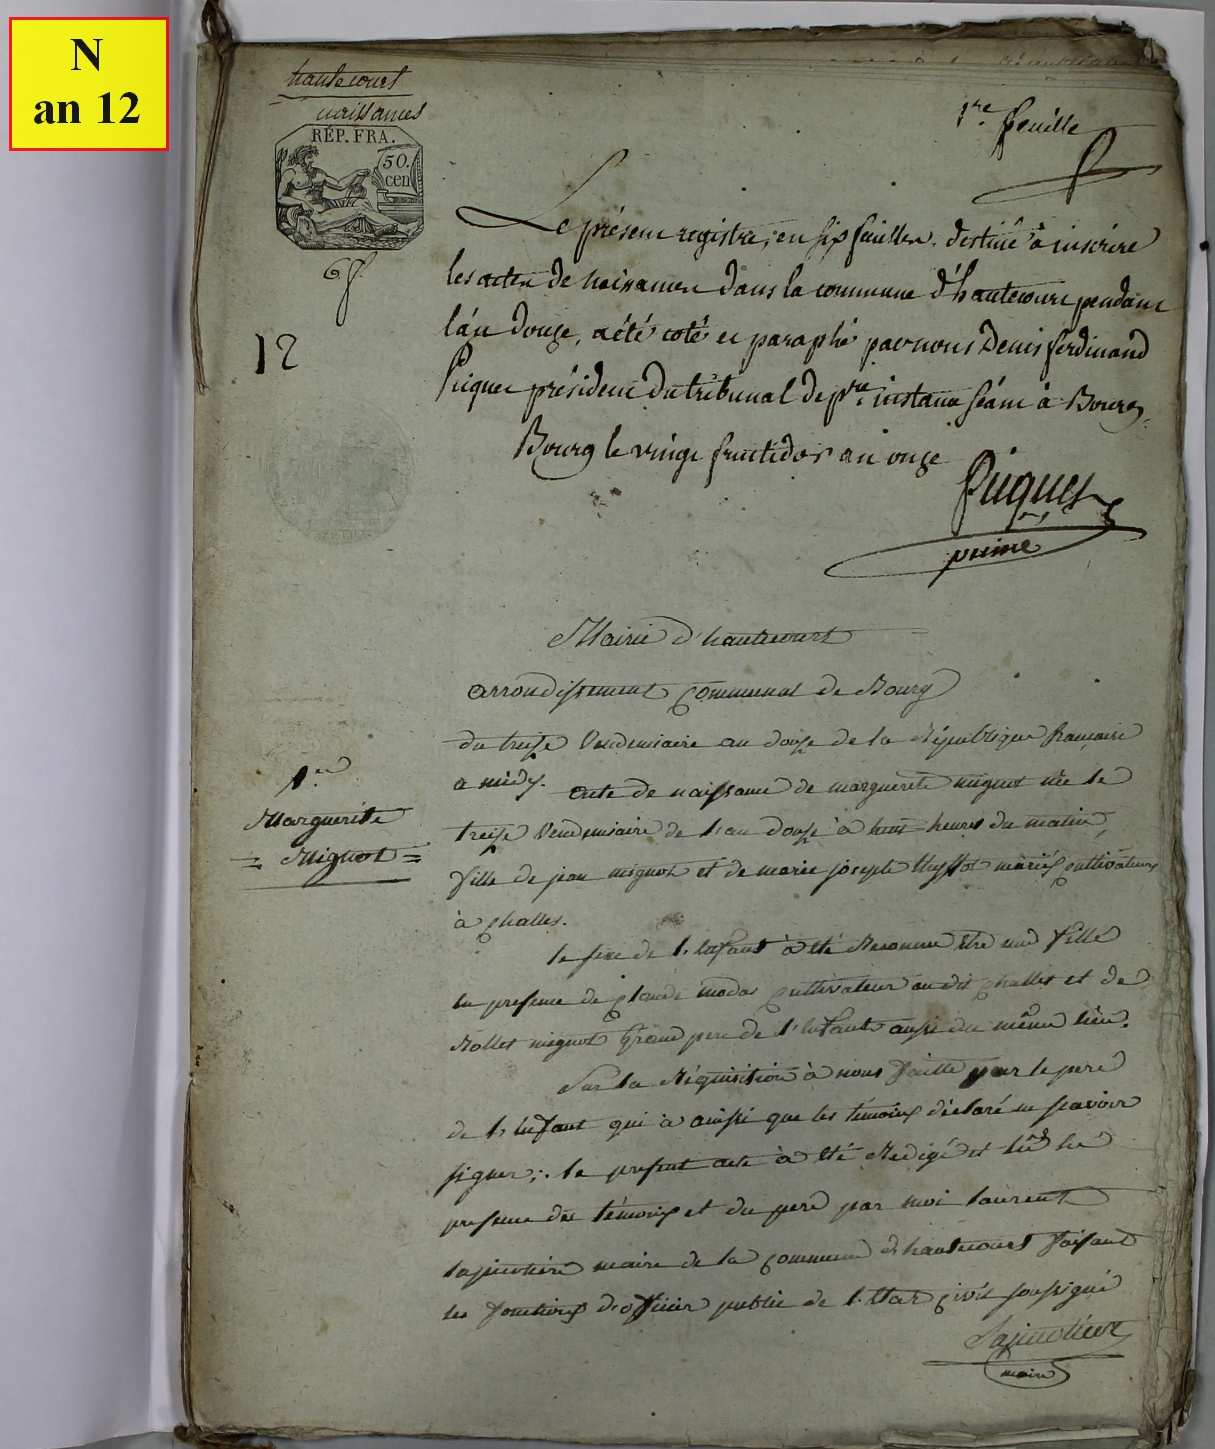 N
an 12
hautecourt
naissances
RÉP. FRA.
50.
cen
6 f.
12
1re feuille
Le présent registre, en six feuilles, destiné à inscrire
les actes de naissances dans la commune d'hautecourt pendant
l'an douze, a été coté et paraphé par nous Denis ferdinand
Piquet président du tribunal de pre. instance séant à Bourg,
Bourg le vingt fructidor an onze
Piquet
Mairie d'hautecourt
arrondissement communal de Bourg
du treize Vendemiaire an douze de la République française
a midy. acte de naissance de marguerite mignot née le
treize Vendemiaire de l'an douze à huit heures du matin,
fille de jean mignot et de marie joseph mariés cultivateurs
à challes.
1er
Marguerite
= Mignot =
le sexe de l'enfant à été Reconnu être une fille
en presence de claude cultivateur au dit challes et de
mignot grand pere de l'enfant aussi du même lieu.
Sur la Réquisition à nous faitte par le pere
de l'enfant qui à ainsi que les témoins déclaré ne scavoir
signer; le present acte à été Redigé et lû en
presence des témoins et du pere par moi laurent
maire de la commune d'hautecourt faisant
les fonctions d'officier public de l'Etat civil soussigné
maire